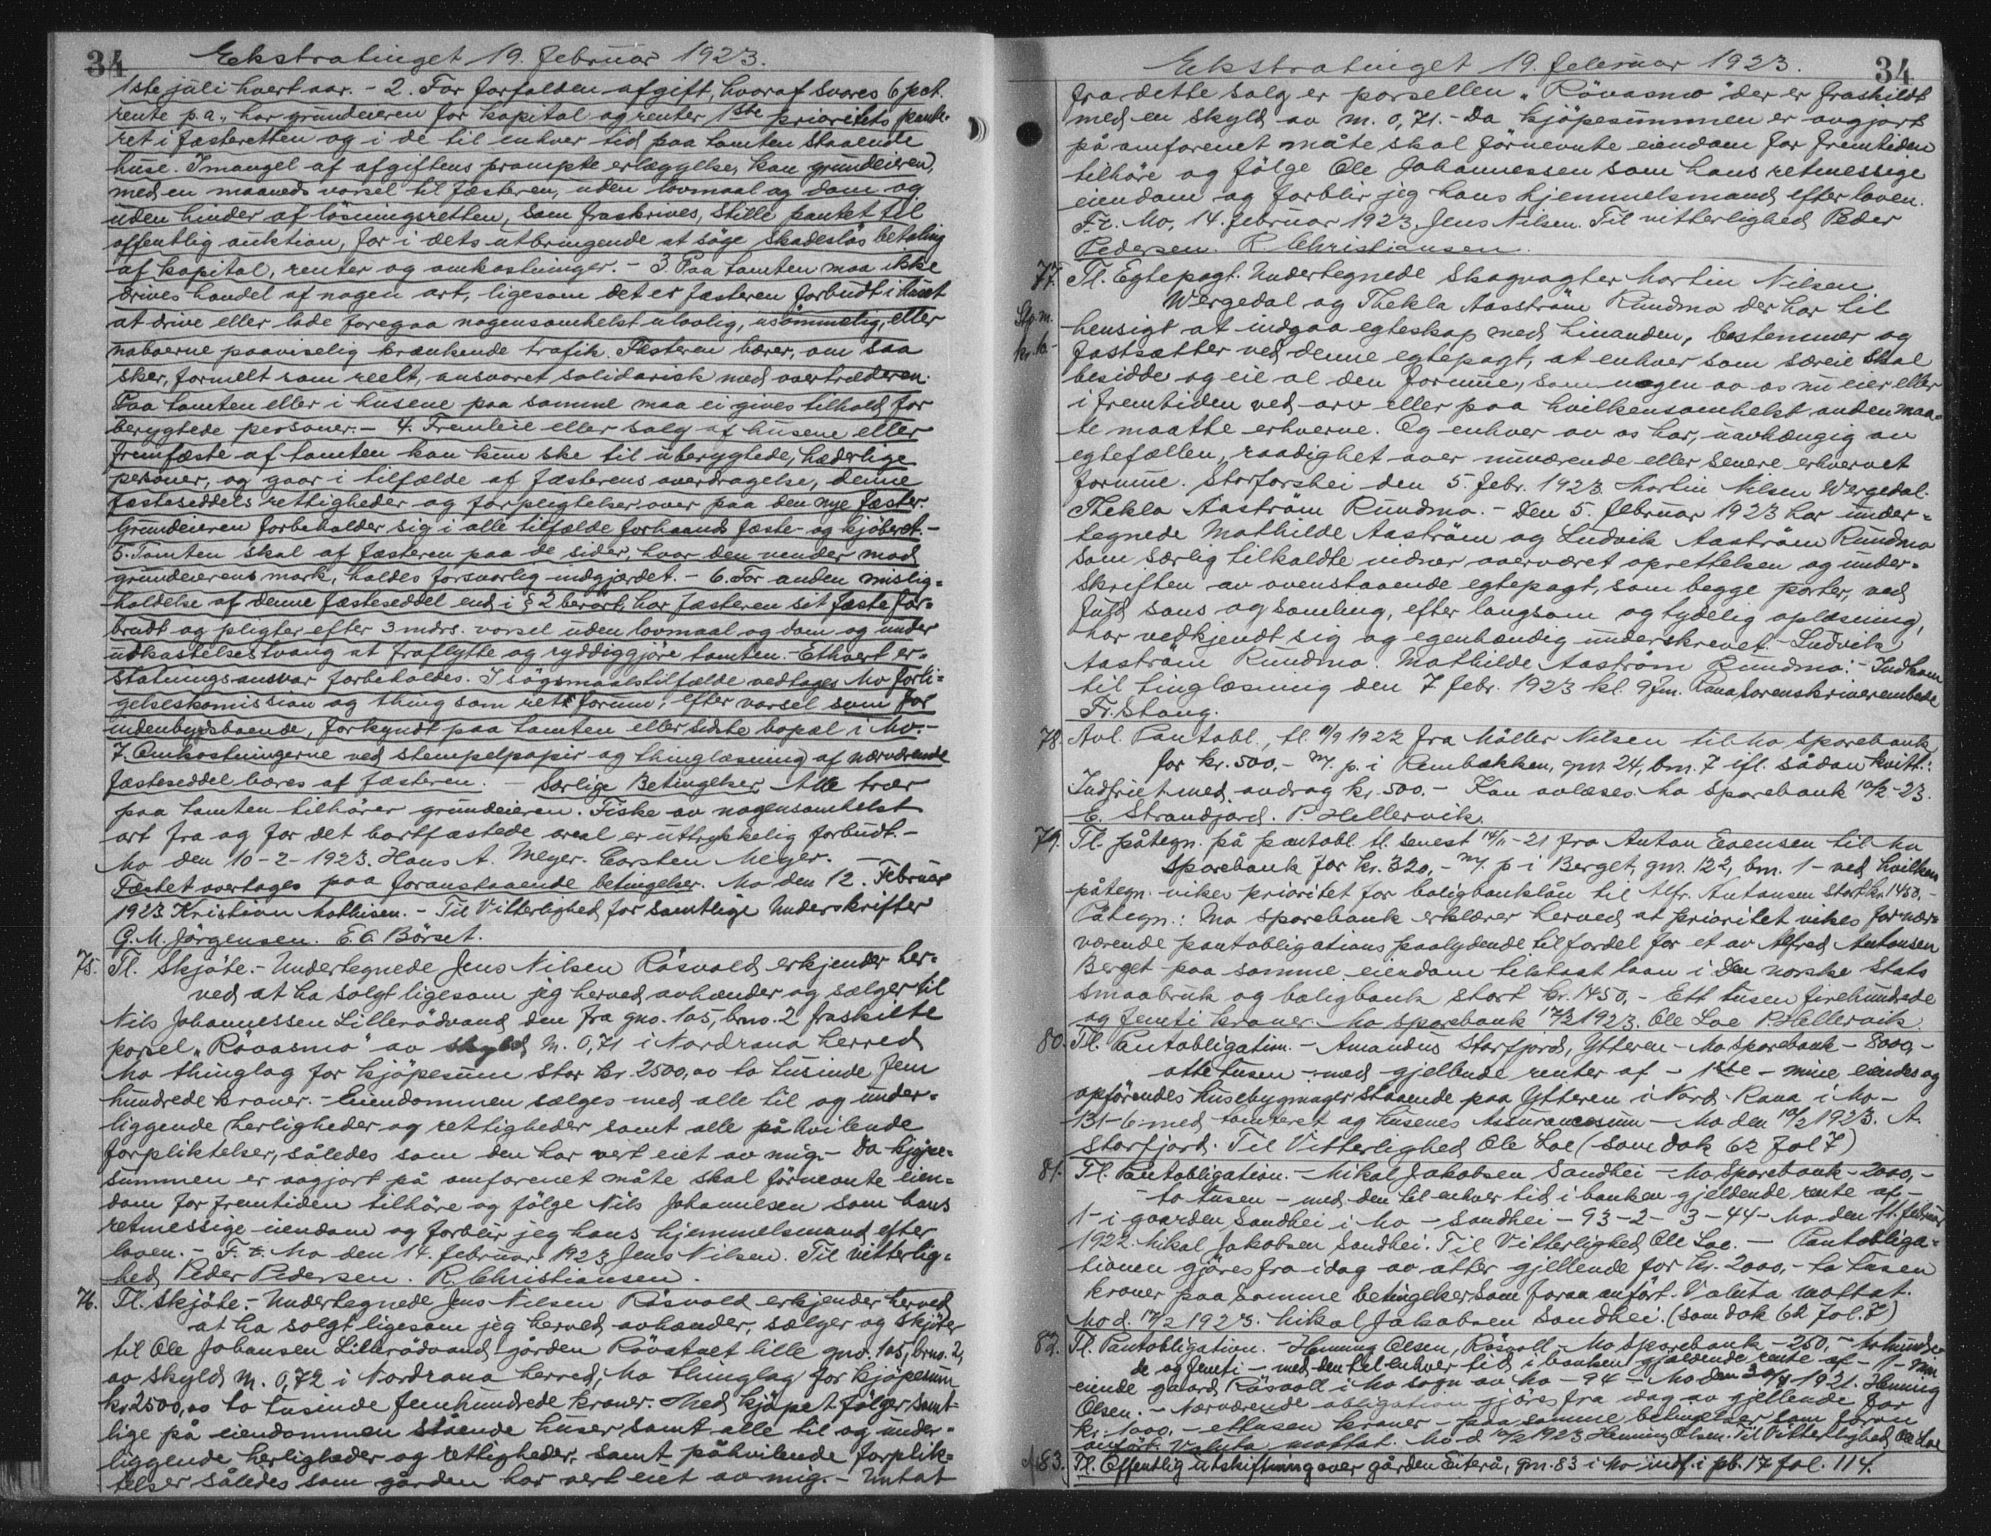 34
Ekstratinget 19. februar 1923.
1ste juli hvert aar. - 2. For forfalden afgift, hvoraf svares 6 pct.
rente p.a., har grundeieren for kapital og renter 1ste prioritets pant-
ret i fæsteretten og i de til enhver tid paa tomten staaende
huse. I mangel af afgiftens prompte erlæggelse, kan grundeieren,
med en maaneds varsel til fæsteren, uden lovmaal og dom og
uden hinder af løsningsretten, som fraskrives, stille pantet til
offentlig auktion, for i dets utbringende at søge skadesløs betaling
af kapital, renter og omkostninger. - 3. Paa tomten maa ikke
drives handel af nogen art, ligesom det er fæsteren forbudt i huset
at drive eller lade foregaa nogensomhelst ulovlig, usømmelig, eller
naboerne paaviselig krænkende trafik. Fæsteren bærer, om saa
sker, formelt som reelt, ansvaret solidarisk med overtræderen.
Paa tomten eller i husene paa samme maa ei gives tilhold for
berygtede personer. - 4. Fremleie eller salg af husene eller
fremfæste af tomten kan kun ske til uberygtede, hæderlige
personer, og gaar i tilfælde af fæsterens overdragelse, denne
fæsteseddels rettigheder og forpligtelser over paa den nye fæster.
Grundeieren forbeholder sig i alle tilfælde forhaands fæste- og kjøberet. -
5. Tomten skal af fæsteren paa de sider, hvor den vender mod
grundeierens mark, holdes forsvarlig indgjærdet. - 6. For anden mislig-
holdelse af denne fæsteseddel end i § 2 berørt, har fæsteren sit fæste for-
brudt og pligter efter 3 mdrs. varsel uden lovmaal og dom og under
udkastelsestvang at fraflytte og ryddiggjøre tomten. - Ethvert er-
statningsansvar forbeholdes. I søgsmaalstilfælde vedtages Mo forli-
gelseskomission og thing som rett forum, efter varsel som for
indenbygdsboende, forkyndt paa tomten eller sidste bopæl i Mo. -
7. Omkostningerne ved stempelpapir og thinglæsning af nærværende
fæsteseddel bæres af fæsteren. Særlige Betingelser. Alle trær
paa tomten tilhører grundeieren. Fiske av nogensomhelst
art fra og for det bortfæstede areal er uttrykkelig forbudt. -
Mo den 10-2-1923. Hans A. Meyer. Carsten Meyer. -
Fæstet overtages paa foranstaaende betingelser. Mo den 12. Februar
1923 Kristian Mathisen. - Til Vitterlighed for samtlige Underskrifter
G. M. Jørgensen. E. O. Børset.
75. Tl. Skjøte. - Undertegnede Jens Nilsen Røsvold erkjender her-
ved at ha solgt ligesom jeg herved avhænder og sælger til
Nils Johannessen Lillerødvand den fra gno. 105, brno. 2 fraskilte
porsel "Røvasmo" av skyld M. 0,71 i Nordrana herred
Mo thinglag for kjøpesum stor kr. 2500,00 to tusinde fem
hundrede kroner. - Eiendommen sælges med alle til og under-
liggende herligheder og rettigheder samt alle påhvilende
forpliktelser, således som den har vert eiet av mig. - Da kjøpe-
summen er avgjort på omforenet måte skal førnevnte eien-
dom for fremtiden tilhøre og følge Nils Johannesen som hans
retmessige eiendom og forblir jeg hans hjemmelsmand efter
loven. - F. t. Mo den 14. februar 1923 Jens Nilsen. Til vitterlig-
hed Peder Pedersen. R. Christiansen.
76. Tl. Skjøte. - Undertegnede Jens Nilsen Røsvold erkjender herved
at ha solgt ligesom jeg herved avhænder, sælger og skjøter
til Ole Johansen Lillerødvand gården Røvatnet lille gno. 105, brno. 2,
av skyld M. 0,72 i Nordrana herred, Mo thinglag for kjøpesum
kr. 2500,00 to tusinde femhundrede kroner. Med kjøpet følger samt-
lige på eiendommen stående huser samt alle til og under-
liggende herligheder og rettigheder, samt påhvilende forplik-
telser således som gården har vert eiet av mig. - Untat
Ekstratinget 19. februar 1923.
34
fra dette salg er porsellen "Røvasmo" der er fraskildt
med en skyld av M. 0,71. - Da kjøpesummen er avgjort
på omforenet måte skal førnevnte eiendom for fremtiden
tilhøre og følge Ole Johannessen som hans retmessige
eiendom og forblir jeg hans hjemmelsmand efter loven.
F. t. Mo, 14. februar 1923, Jens Nilsen. Til vitterlighed Peder
Pedersen. R. Christiansen.
77. Tl. Egtepagt. Undertegnede Skogvogter Martin Nilsen
Wergedal og Thekla Aaström Rundmo der har til
hensigt at indgaa egteskap med hinanden, bestemmer og
fastsætter ved denne egtepagt, at enhver som særeie skal
besidde og eie al den formue, som nogen av os nu eier eller
i fremtiden ved arv eller paa hvilkensomhelst anden maa-
te maatte erhverve. Og enhver av os har, uavhængig av
egtefællen, raadighet over nuværende eller senere erhvervet
formue. Storforshei den 5. febr. 1923 Martin Nilsen Wergedal.
Thekla Aaström Rundmo. - Den 5. februar 1923 har under-
tegnede Mathilde Aaström og Ludvik Aaström Rundmo
som særlig tilkaldte vidner overværet oprettelsen og under-
skriften av ovenstaaende egtepagt, som begge parter, ved
fuld sans og samling, efter langsom og tydelig oplæsning,
har vedkjendt sig og egenhændig underskrevet. Ludvik
Aaström Rundmo. Mathilde Aaström Rundmo. - Indkom
til tinglæsning den 7 febr. 1923 kl. 9 fm. Rana sorenskriverembede
Fr. Stang.
78. Avl. Pantobl., tl. 11/9 1922 fra Møller Nilsen til Mo sparebank
for kr. 500,- m/ p. i Rembakken, gnr. 24, bnr. 7 ifl. sådan kvitt.:
Indfriet med avdrag kr. 500.- Kan avlæses. Mo sparebank 10/2-23.
E. Strandjord. P. Hellervik.
79. Tl. påtegn. på pantobl. tl. senest 14/11-21 fra Anton Evensen til Mo
sparebank for kr. 320,- m/ p i Berget, gnr. 122, bnr. 1 - ved hvilken
påtegn. vikes prioritet for boligbanklån til Alfr. Antonsen stort kr. 1450,-
Påtegn.: Mo sparebank erklærer herved at prioritet vikes for nær-
værende pantobligations paalydende til fordel for et av Alfred Antonsen
Berget paa samme eiendom tilstaat laan i Den norske Stats
smaabruk og boligbank stort kr. 1450,- Ett tusen firehundrede
og femti kroner. Mo sparebank 17/2 1923. Ole Loe P. Hellervik.
80. Tl. Pantobligation. - Amandus Storfjord, Ytteren - Mo sparebank - 8000,-
otte tusen - med gjellende renter af - 1ste - mine eiendes og
opførendes husebygninger staaende paa Ytteren i Nord-Rana i Mo -
131-6 med tomteret og husenes Assurancesum - Mo den 10/2 1923. A.
Storfjord. Til Vitterlighed Ole Loe (som dok 62 fol 7)
81. Tl. Pantobligation. - Mikal Jakobsen Sandhei - Mo Sparebank - 2000,-
- to tusen - med den til enhver tid i banken gjeldende rente af -
1- i gaarden Sandhei i Mo - Sandhei - 93-2- 3-44- Mo den 11. februar
1922. Mikal Jakobsen Sandhei. Til Vitterlighed Ole Loe. - Pantobliga-
tionen gjøres fra idag av atter gjellende for kr. 2000,- to tusen
kroner paa samme betingelser som foran anført. Valuta mottat.
Mo d. 17/2 1923. Mikal Jakobsen Sandhei. (som dok 62 fol. 7)
82. Tl. Pantobligation. - Henning Olsen, Røsvoll - Mo sparebank - 250,- to hundre
de og femti - med den til enhver tid i banken gjældende rente af - 1 - min
eiende gaard Røsvoll i Mo sogn av Mo - 94 - Mo den 30/8 1921. Henning
Olsen. - Nærværende obligation gjøres fra idag av gjellende for
kr. 1000,- ettusen kroner - paa samme betingelser som foran
anført. Valuta mottat. Mo d 10/2 1923 Henning Olsen. Til Vitterlighed Ole Loe
83. Tl. Offentlig utskiftning over gården Eiterå, gnr. 83 i Mo indf. i pb. 17 fol. 114.